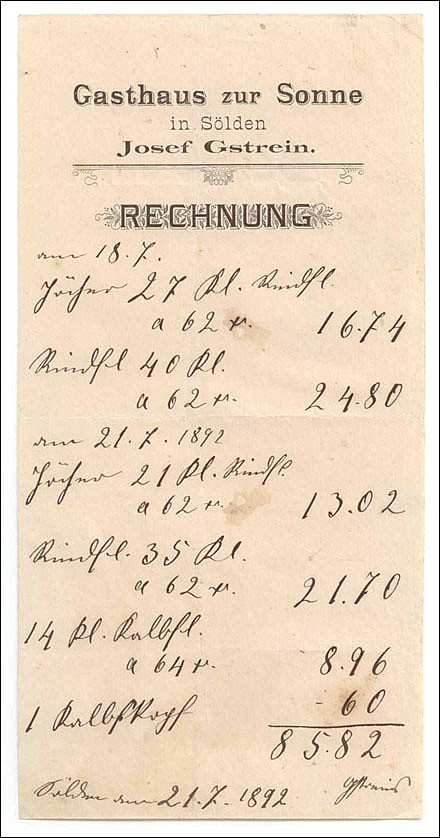 Gasthaus zur Sonne
in Sölden
Josef Gstrein.
RECHNUNG
am 18.7.
27 Kl. Rindfl.
a 62 xr. 16.74
Rindfl 40 Kl.
a 62 xr. 24.80
am 21.7.1892
21 Kl. Rindfl.
a 62 xr. 13.02
Rindfl. 35 Kl.
a 62 xr. 21.70
14 Kl. Kalbfl.
a 64 xr. 8.96
1 Kalbskopf - 60
85.82
Sölden am 21.7.1892 Gstrein